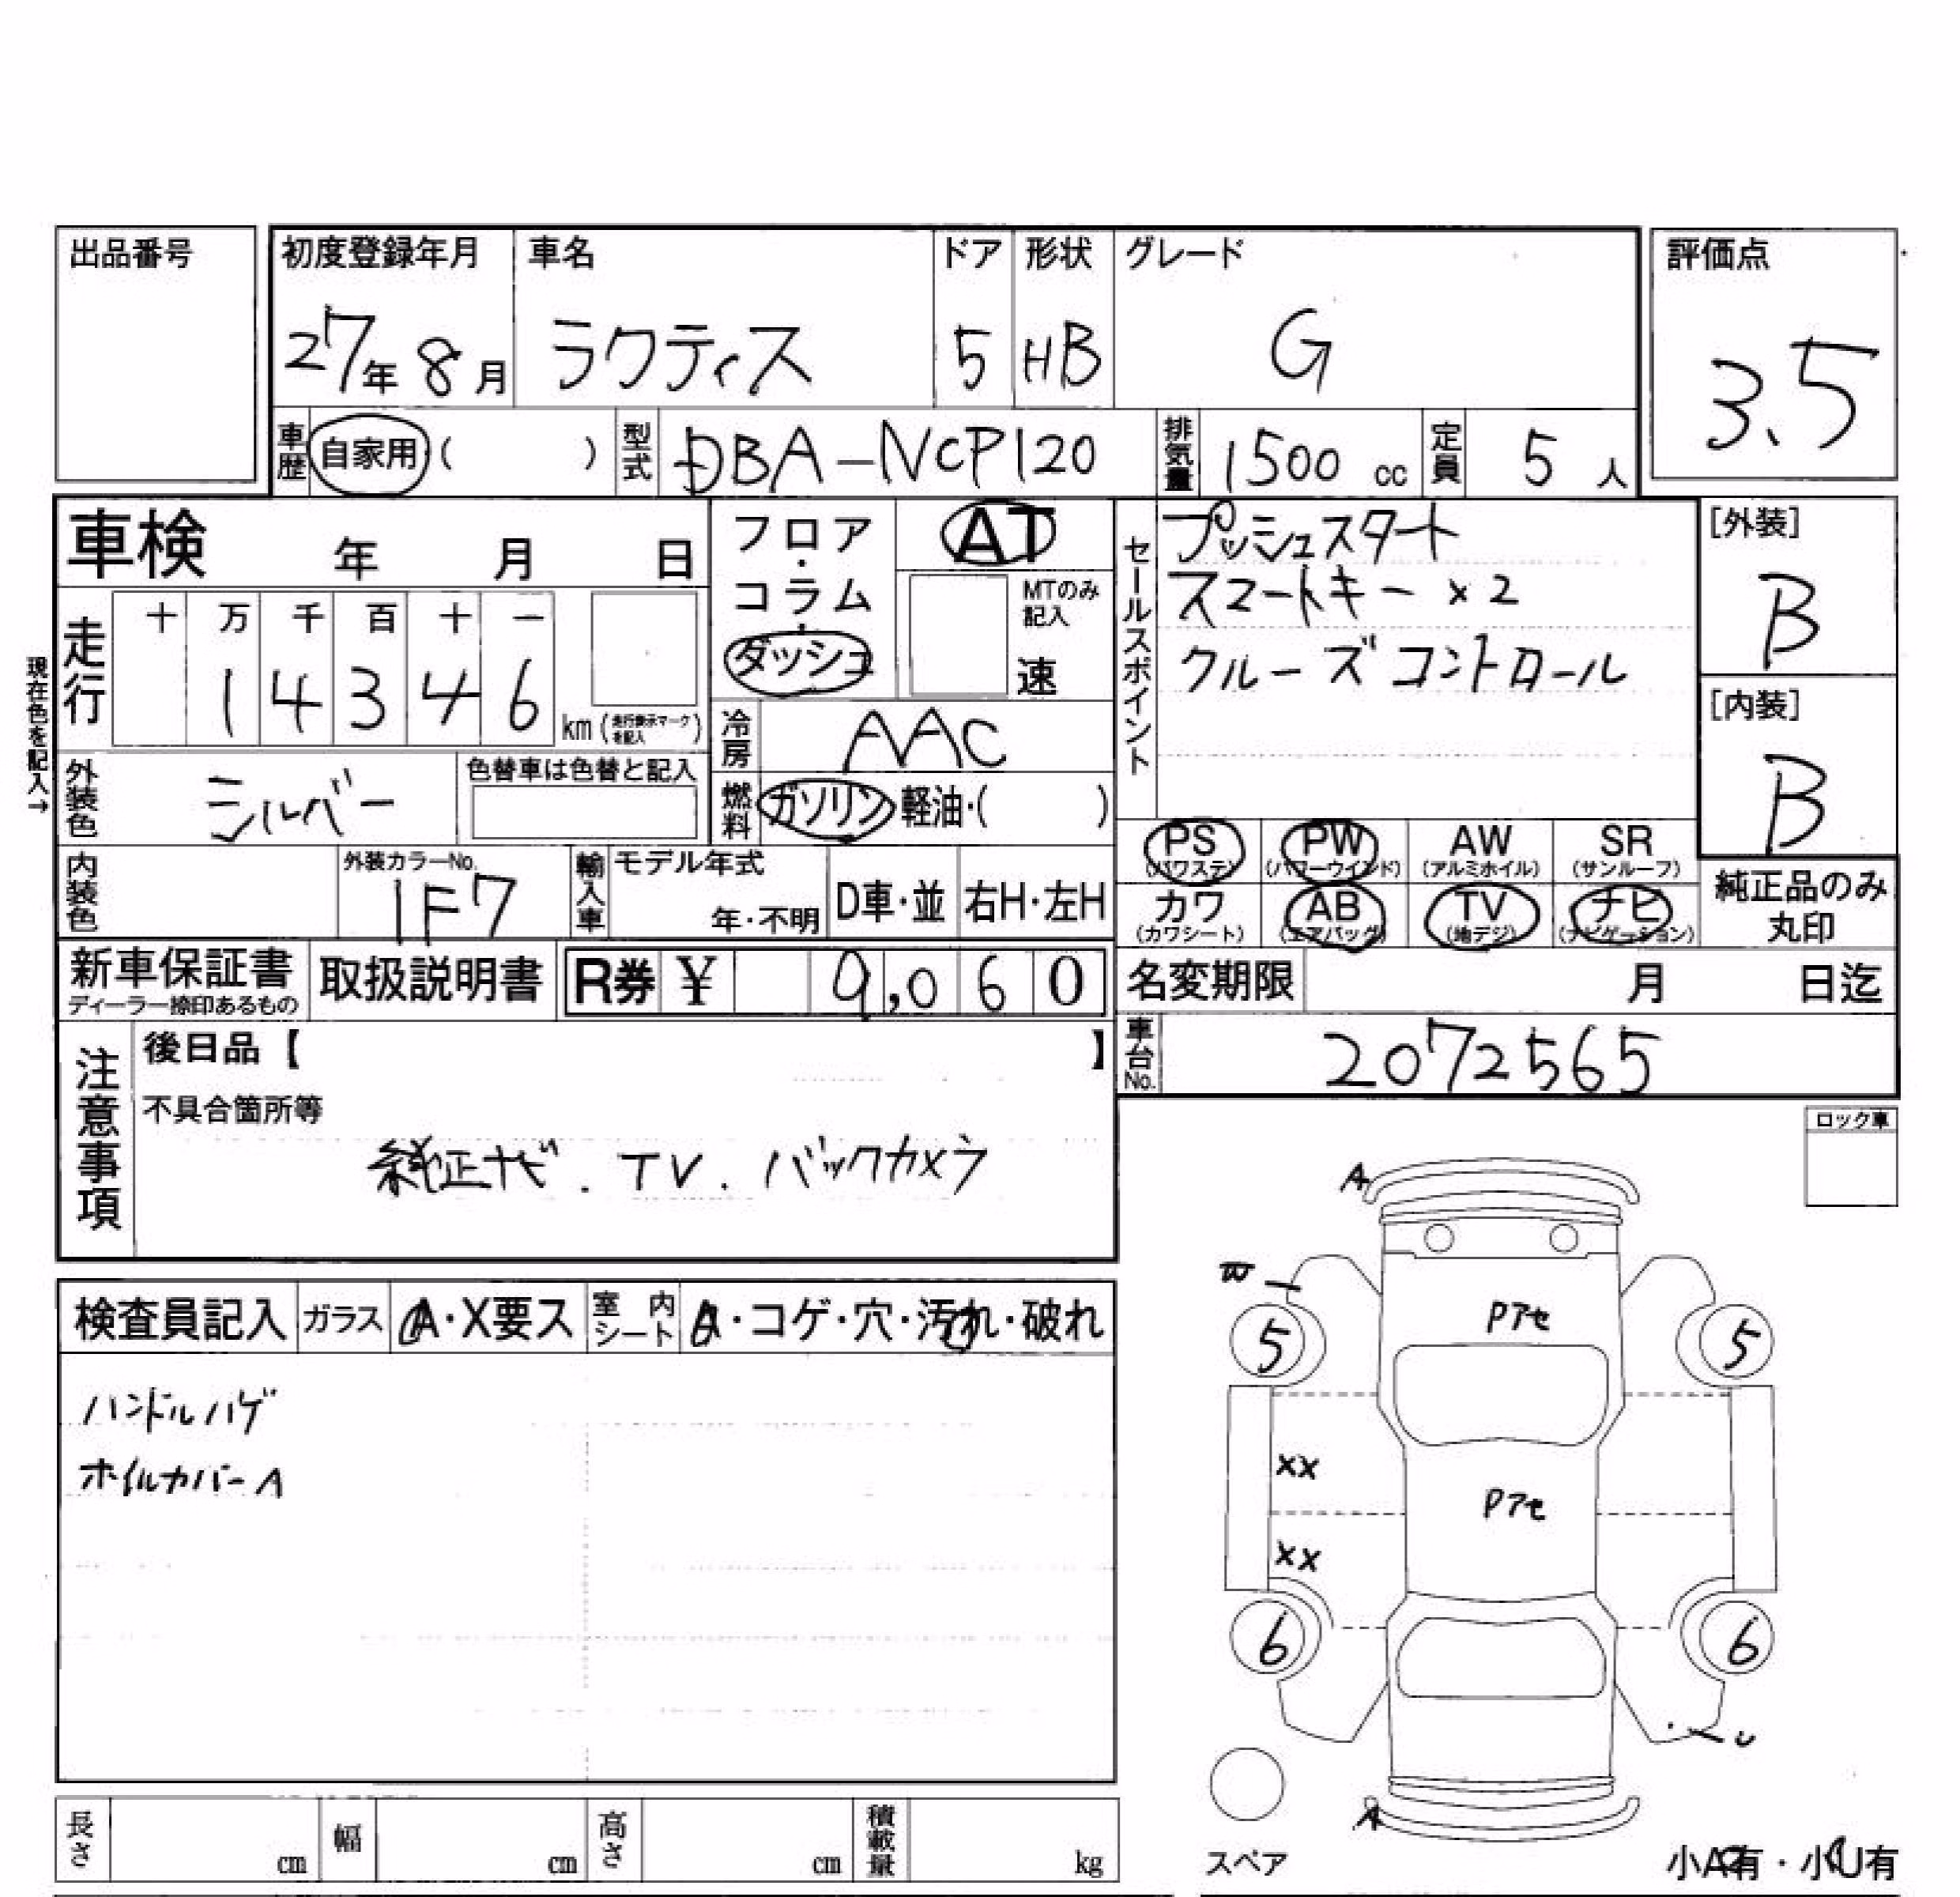 出品番号
初度登録年月 車名 ドア 形状 グレード 評価点
27年 8月 ラクティス 5 HB G 3.5
車歴 自家用 ( ) 型式 DBA-NCP120 排気量 1500 cc 定員 5 人
車検 年 月 日
フロア・コラム・ダッシュ
AT
MTのみ記入
速
セールスポイント
プッシュスタート
スマートキー ×2
クルーズコントロール
[外装]
B
[内装]
B
現在色を記入→
走行 十 万 千 百 十 一
1 4 3 4 6 km (走行表示マークを記入)
冷房 AAC
燃料 ガソリン 軽油・( )
外装色 シルバー 色替車は色替と記入
内装色 外装カラーNo. 1F7
輸入車 モデル年式 年・不明 D車・並 右H・左H
PS (パワステ) PW (パワーウインド) AW (アルミホイル) SR (サンルーフ)
カワ (カワシート) AB (エアバッグ) TV (地デジ) ナビ (ナビゲーション)
純正品のみ丸印
新車保証書 ディーラー捺印あるもの 取扱説明書 R券 ¥ 9,060
名変期限 月 日迄
車台No. 2072565
注意事項
後日品【 】
不具合箇所等
純正ナビ. TV. バックカメラ
ロック車
検査員記入 ガラス A・X要ス 室内シート ・コゲ・穴・汚れ・破れ
ハンドルハゲ
ホイルカバーA
A
W
Pアセ
5 5
XX
Pアセ
XX
6 6
U
A
スペア
小A有・小U有
長さ cm 幅 cm 高さ cm 積載量 kg